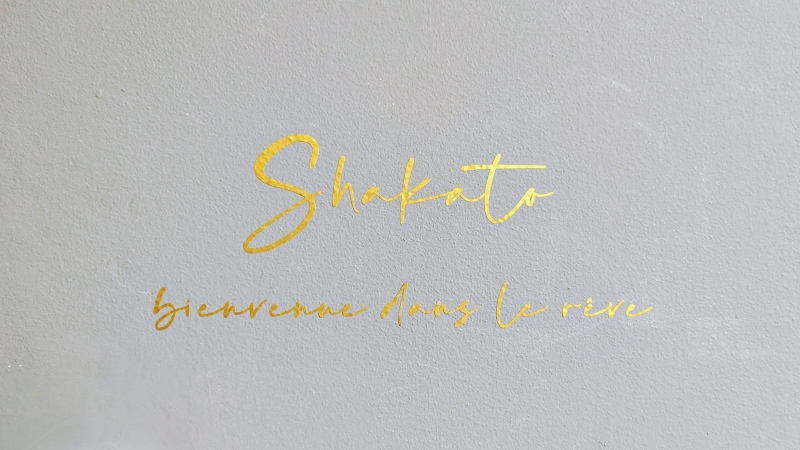 Shakato
bienvenue dans le rêve